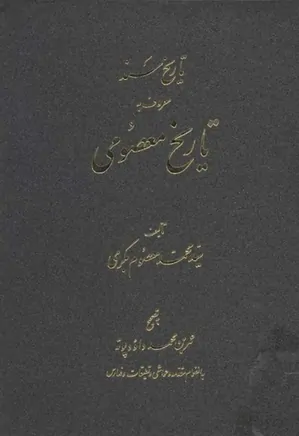 تاریخ سند
معروف به
تاریخ معصومی
تألیف
سید محمد معصوم بکری
بتصحیح
عمر بن محمد داود پوته
با انضمام مقدمه و حواشی و تعلیقات و فهارس